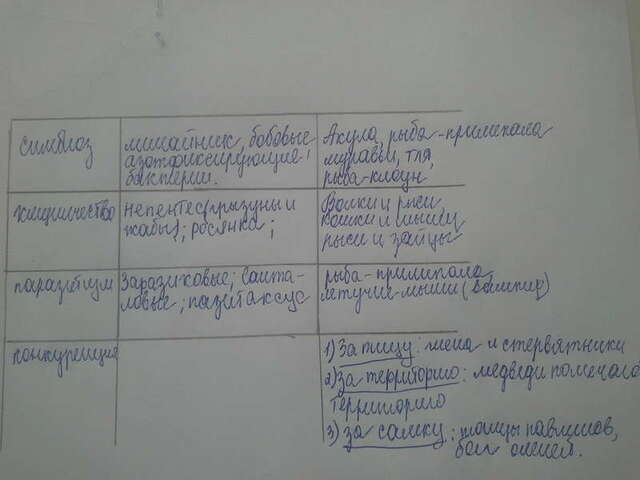 симбиоз
лишайник, бобовые
азотфиксирующие
бактерии.
Акула, рыба-прилипала
муравьи, тля,
рыба-клоун
хищничество
непентес(грызуны и
жабы); росянка;
Волки и рыси
кошки и мыши
рыси и зайцы
паразитизм
Заразиховые; Санта-
ловые;
рыба-прилипала
летучие-мыши (вампир)
конкуренция
1) За пищу: и стервятники
2) За территорию: медведи
территорию
3) за самку; танцы павлинов,
бои оленей.